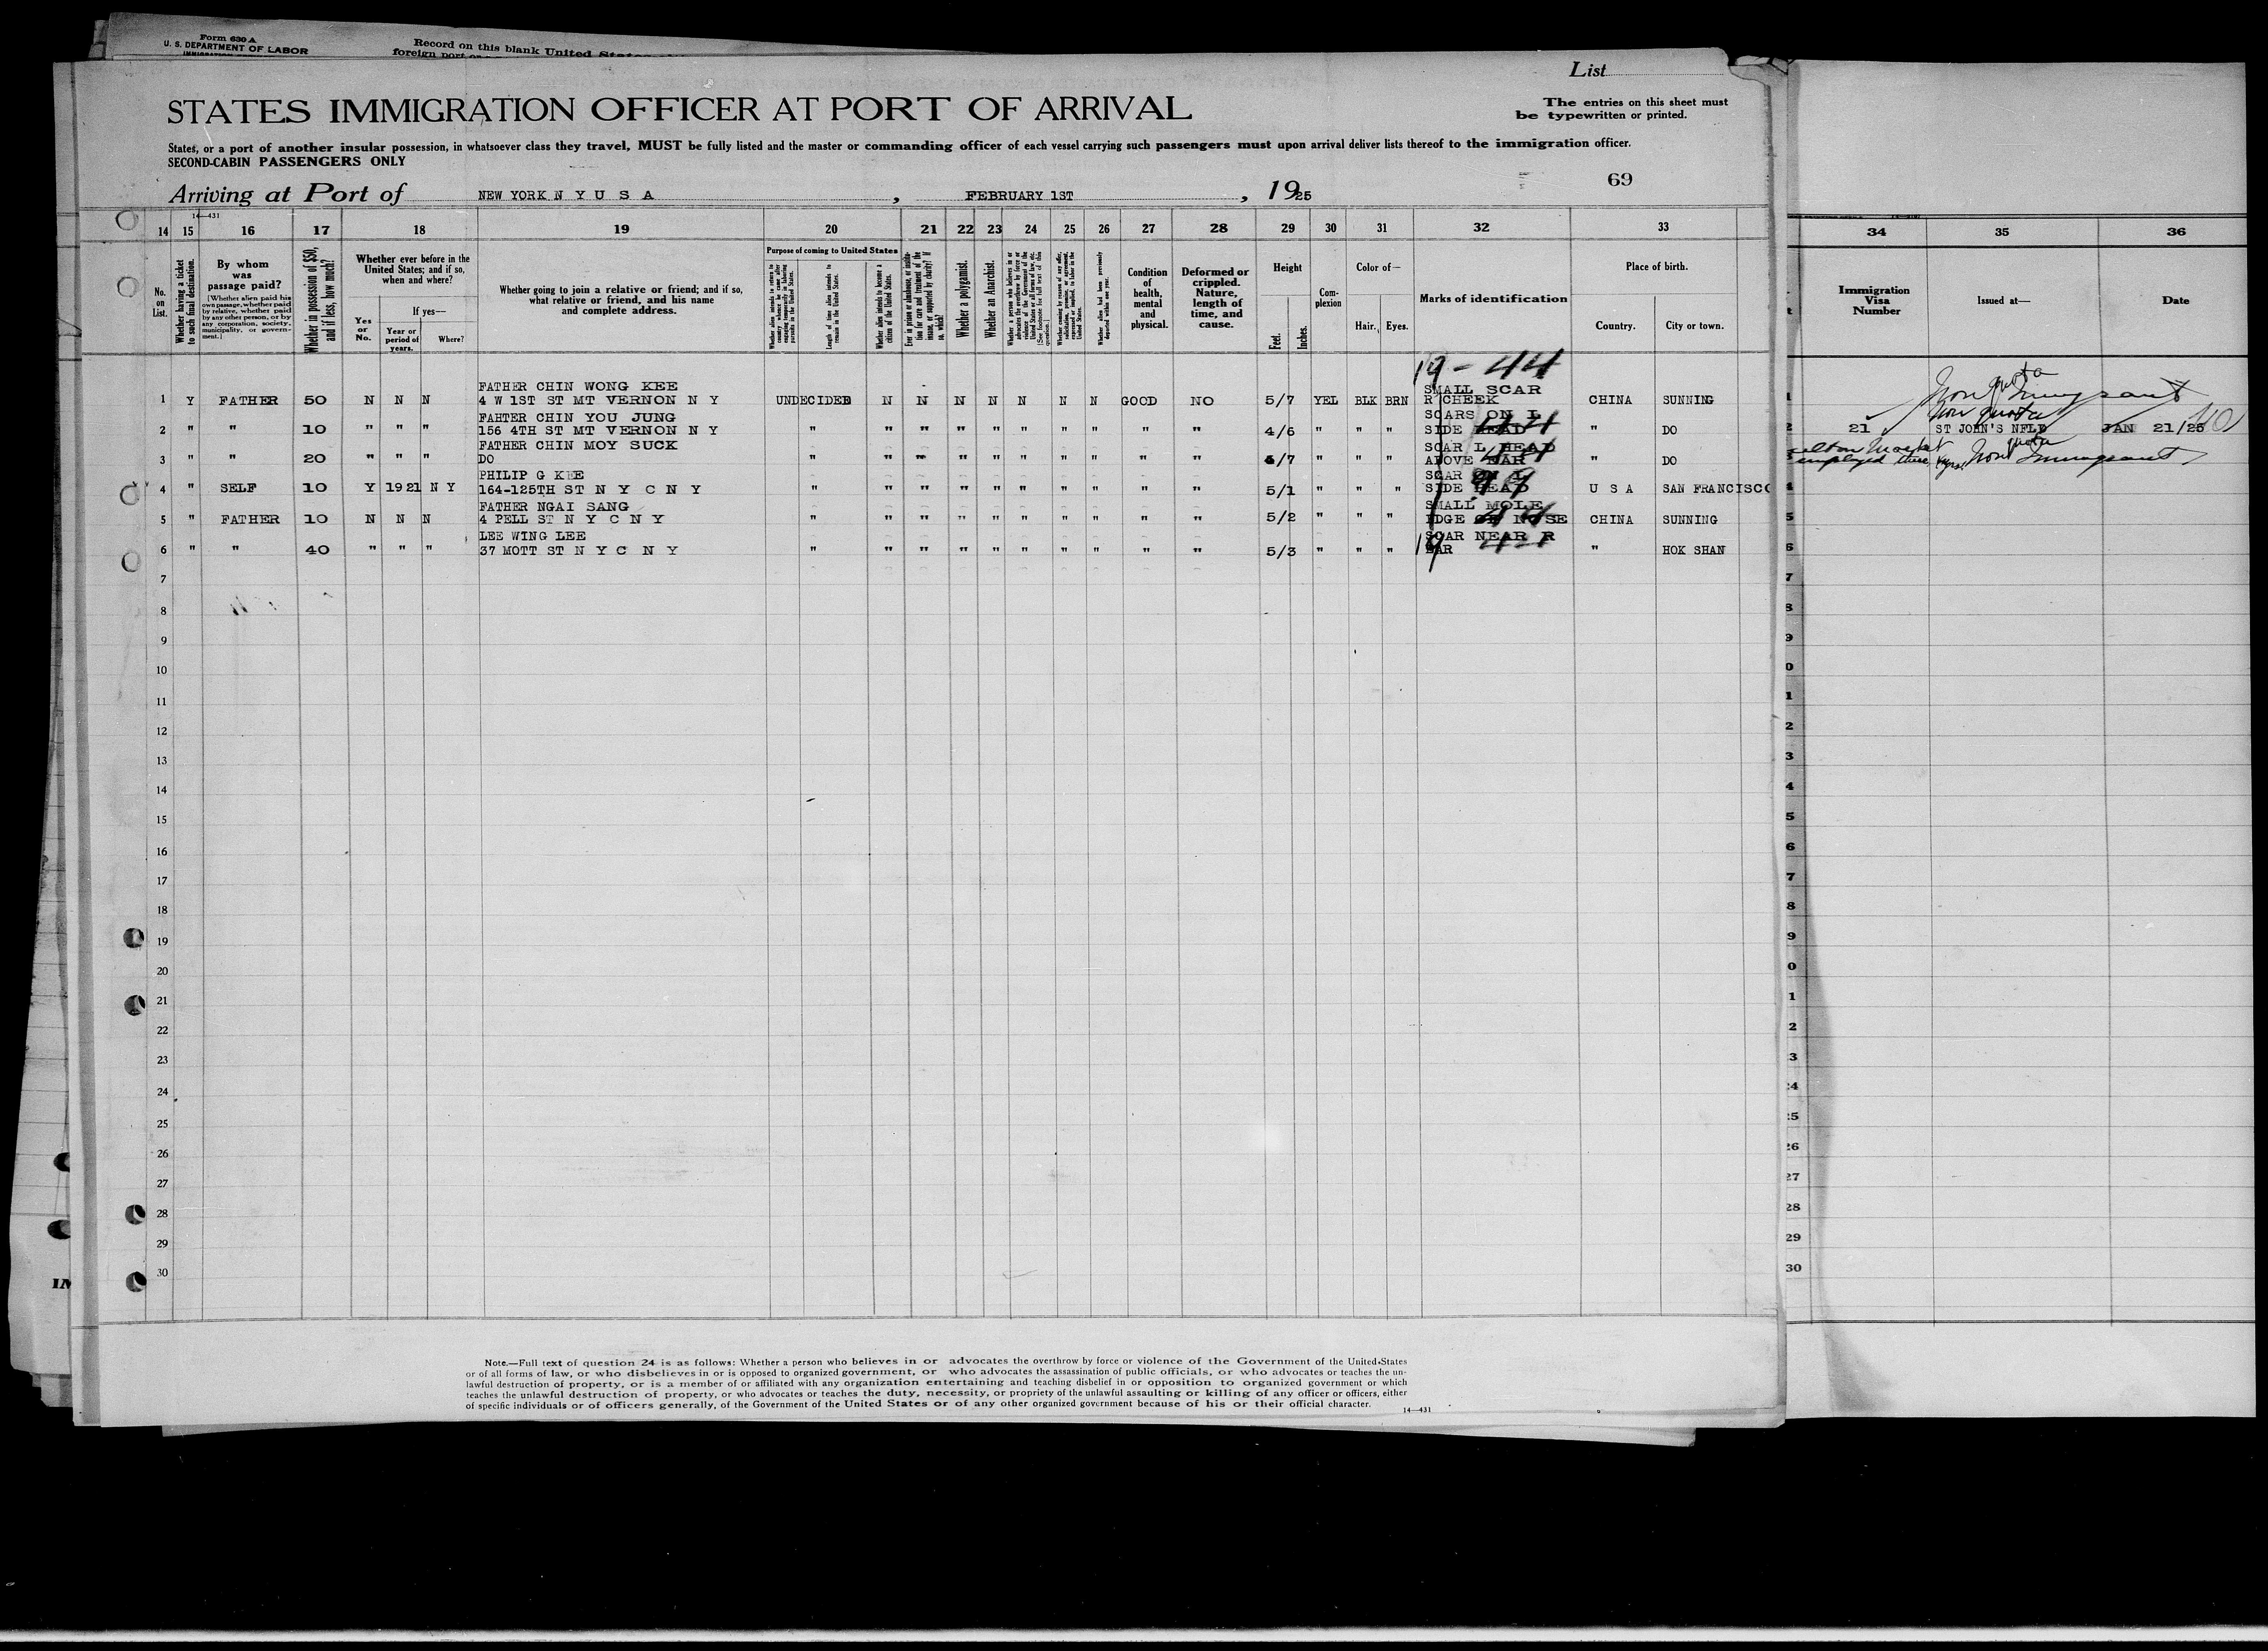 Form 630 A
U. S. DEPARTMENT OF LABOR
Record on this blank United States
foreign port or
List
STATES IMMIGRATION OFFICER AT PORT OF ARRIVAL
The entries on this sheet must
be typewritten or printed.
States, or a port of another insular possession, in whatsoever class they travel, MUST be fully listed and the master or commanding officer of each vessel carrying such passengers must upon arrival deliver lists thereof to the immigration officer.
SECOND-CABIN PASSENGERS ONLY
69
Arriving at Port of NEW YORK N Y U S A , FEBRUARY 1ST , 1925
14—431
14 15 16 17 18 19 20 21 22 23 24 25 26 27 28 29 30 31 32 33 34 35 36
No. on List.
Whether having a ticket to such final destination.
By whom was passage paid?
[Whether alien paid his own passage, whether paid by relative, whether paid by any other person, or by any corporation, society, municipality, or government.]
Whether in possession of $50, and if less, how much?
Whether ever before in the United States; and if so, when and where?
Yes or No.
If yes—
Year or period of years.
Where?
Whether going to join a relative or friend; and if so, what relative or friend, and his name and complete address.
Purpose of coming to United States
Length of time alien intends to remain in the United States.
Whether alien intends to become a citizen of the United States.
Whether a polygamist.
Whether an Anarchist.
Condition of health, mental and physical.
Deformed or crippled. Nature, length of time, and cause.
Height
Feet. Inches.
Complexion
Color of—
Hair. Eyes.
Marks of identification
Place of birth.
Country. City or town.
Immigration Visa Number
Issued at—
Date
19 - 44
FATHER CHIN WONG KEE SMALL SCAR
1 Y FATHER 50 N N N 4 W 1ST ST MT VERNON N Y UNDECIDED N N N N N N N GOOD NO 5/7 YEL BLK BRN R CHEEK CHINA SUNNING Non quota Immigrant
FAHTER CHIN YOU JUNG SCARS ON L Non quota
2 " " 10 " " " 156 4TH ST MT VERNON N Y " " " " " " " " " " 4/6 " " " SIDE HEAD " DO 21 ST JOHN'S NFLD JAN 21/25
FATHER CHIN MOY SUCK SCAR L HEAD
3 " " 20 " " " DO " " " " " " " " " " 5/7 " " " ABOVE EAR " DO Non quota Immigrant
PHILIP G KEE SCAR ON L
4 " SELF 10 Y 1921 N Y 164-125TH ST N Y C N Y " " " " " " " " " " 5/1 " " " SIDE HEAD U S A SAN FRANCISCO
FATHER NGAI SANG SMALL MOLE
5 " FATHER 10 N N N 4 PELL ST N Y C N Y " " " " " " " " " " 5/2 " " " EDGE OF NOSE CHINA SUNNING
LEE WING LEE SCAR NEAR R
6 " " 40 " " " 37 MOTT ST N Y C N Y " " " " " " " " " " 5/3 " " " EAR " HOK SHAN
7
8
9
10
11
12
13
14
15
16
17
18
19
20
21
22
23
24
25
26
27
28
29
30
Note.—Full text of question 24 is as follows: Whether a person who believes in or advocates the overthrow by force or violence of the Government of the United States
or of all forms of law, or who disbelieves in or is opposed to organized government, or who advocates the assassination of public officials, or who advocates or teaches the un-
lawful destruction of property, or is a member of or affiliated with any organization entertaining and teaching disbelief in or opposition to organized government or which
teaches the unlawful destruction of property, or who advocates or teaches the duty, necessity, or propriety of the unlawful assaulting or killing of any officer or officers, either
of specific individuals or of officers generally, of the Government of the United States or of any other organized government because of his or their official character.
14—431